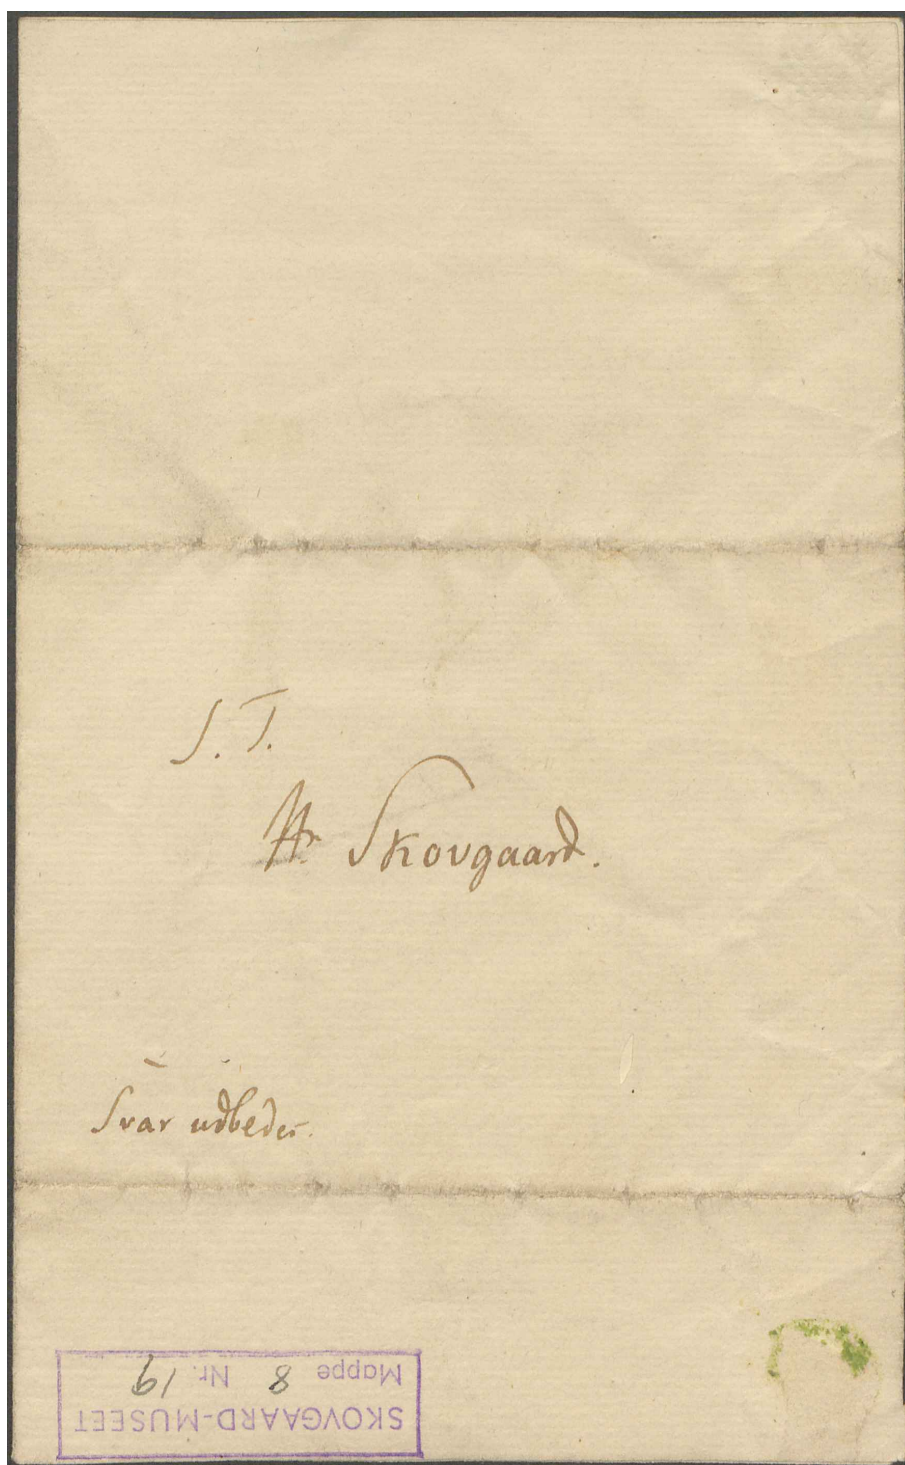 S. T.
Hr Skovgaard.
Svar udbedes.
SKOVGAARD-MUSEET
Mappe 8 Nr. 19